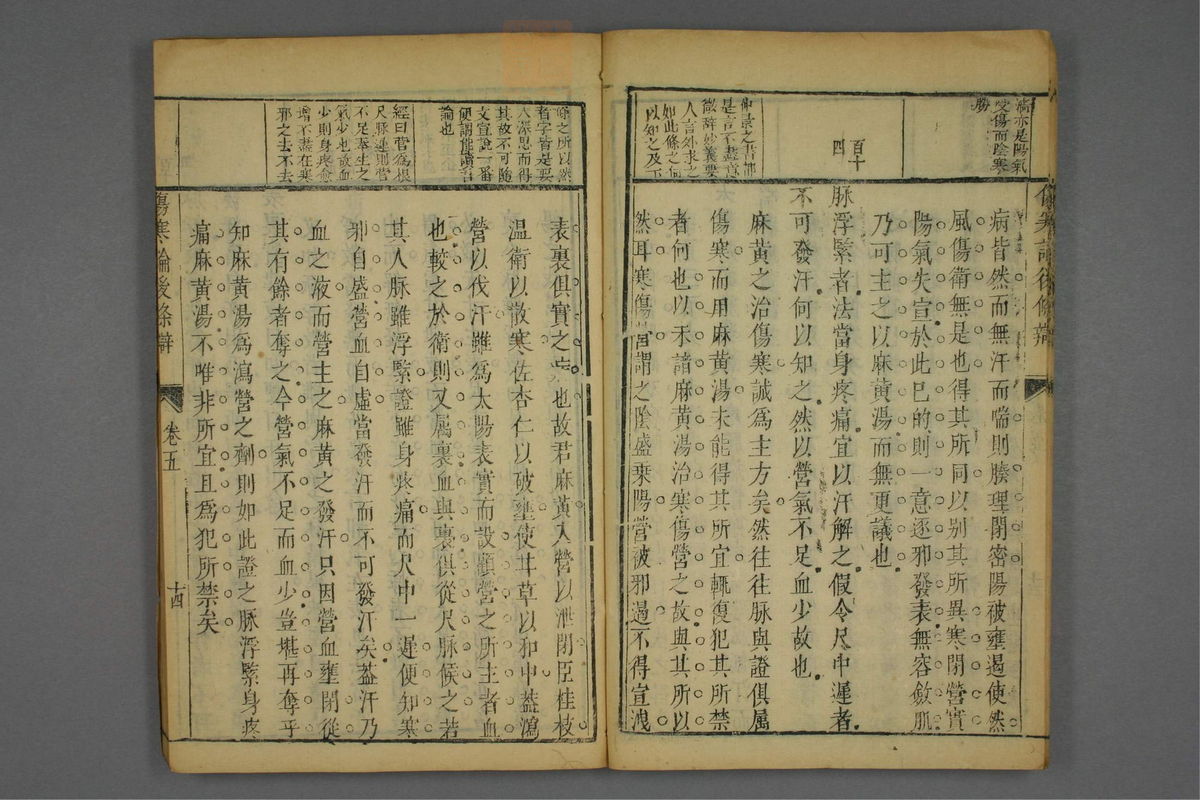 傷寒論後條辯
滯亦是陽氣
受傷而陰寒
勝
百十
四
仲景之書神
是言不盡意
微辭妙義要
人言外求之
如此條之何
以知之及下
病皆然而無汗而喘則腠理閉密陽被壅遏使然
風傷衛無是也得其所同以別其所異寒閉營實
陽氣失宣於此已的則一意逐邪發表無容斂肌
乃可主之以麻黃湯而無更議也
脉浮緊者法當身疼痛宜以汗解之假令尺中遲者
不可發汗何以知之然以營氣不足血少故也
麻黃之治傷寒誠爲主方矣然往往脉與證俱屬
傷寒而用麻黃湯未能得其所宜輒復犯其所禁
者何也以未諳麻黃湯治寒傷營之故與其所以
然耳寒傷營謂之陰盛乗陽營被邪遏不得宣洩
條之所以然
者字皆是要
人深思而得
其故不可隨
文宣說一番
便謂能讀吾
論也
經曰營爲根
尺脉遲則營
不足奉生之
氣少也故血
少則身疼愈
增不盡在寒
邪之去不去
表裏俱實之 也故君麻黃入營以泄閉臣桂枝
温衛以散寒佐杏仁以破壅使甘草以和中葢瀉
營以伐汗雖爲太陽表實而設顧營之所主者血
也較之於衛則又属裏血與裏俱從尺脉候之若
其人脉雖浮緊證雖身疼痛而尺中一遲便知寒
邪自盛營血自虛當發汗而不可發汗矣葢汗乃
血之液而營主之麻黃之發汗只因營血壅閉從
其有餘者奪之今營氣不足而血少豈堪再奪乎
知麻黃湯爲瀉營之劑則如此證之脉浮緊身疼
痛麻黃湯不唯非所宜且爲犯所禁矣
傷寒論後條辯
卷五
十四